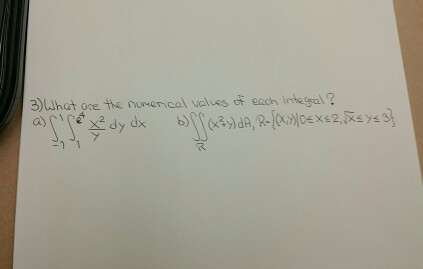 3) What are the numerical values of each integral?
a) ∫₋₁¹ ∫₁^(e⁴) x²/y dy dx b) ∬_R (x²+y) dA, R={(x,y)|0≤x≤2, √x≤y≤3}